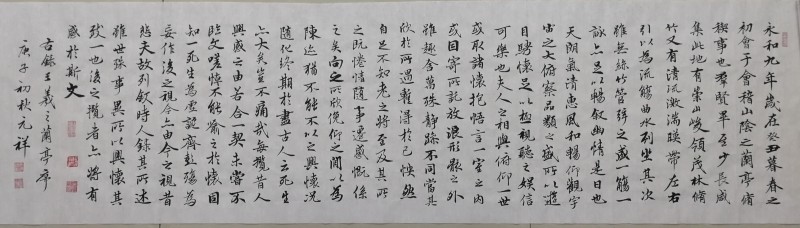 永和九年歲在癸丑暮春之
初會于會稽山陰之蘭亭脩
禊事也群賢畢至少長咸
集此地有崇山峻領茂林脩
竹又有清流激湍暎帶左右
引以為流觴曲水列坐其次
雖無絲竹管弦之盛一觴一
詠亦足以暢敘幽情是日也
天朗氣清惠風和暢仰觀宇
宙之大俯察品類之盛所以遊
目騁懷足以極視聽之娛信
可樂也夫人之相與俯仰一世
或取諸懷抱悟言一室之內
或因寄所託放浪形骸之外
雖趣舍萬殊靜躁不同當其
欣於所遇暫得於己怏然
自足不知老之將至及其所
之既惓情隨事遷感慨係
之矣向之所欣俛仰之間以為
陳迹猶不能不以之興懷況
隨化終期於盡古人云死生
亦大矣豈不痛哉每攬昔人
興感之由若合一契未嘗不
臨文嗟悼不能喻之於懷固
知一死生為虛誕齊彭殤為
妄作後之視今亦由今之視昔
悲夫故列敘時人錄其所述
雖世殊事異所以興懷其
致一也後之攬者亦將有
感於斯文
古錄王羲之蘭亭序
庚子初秋元祥